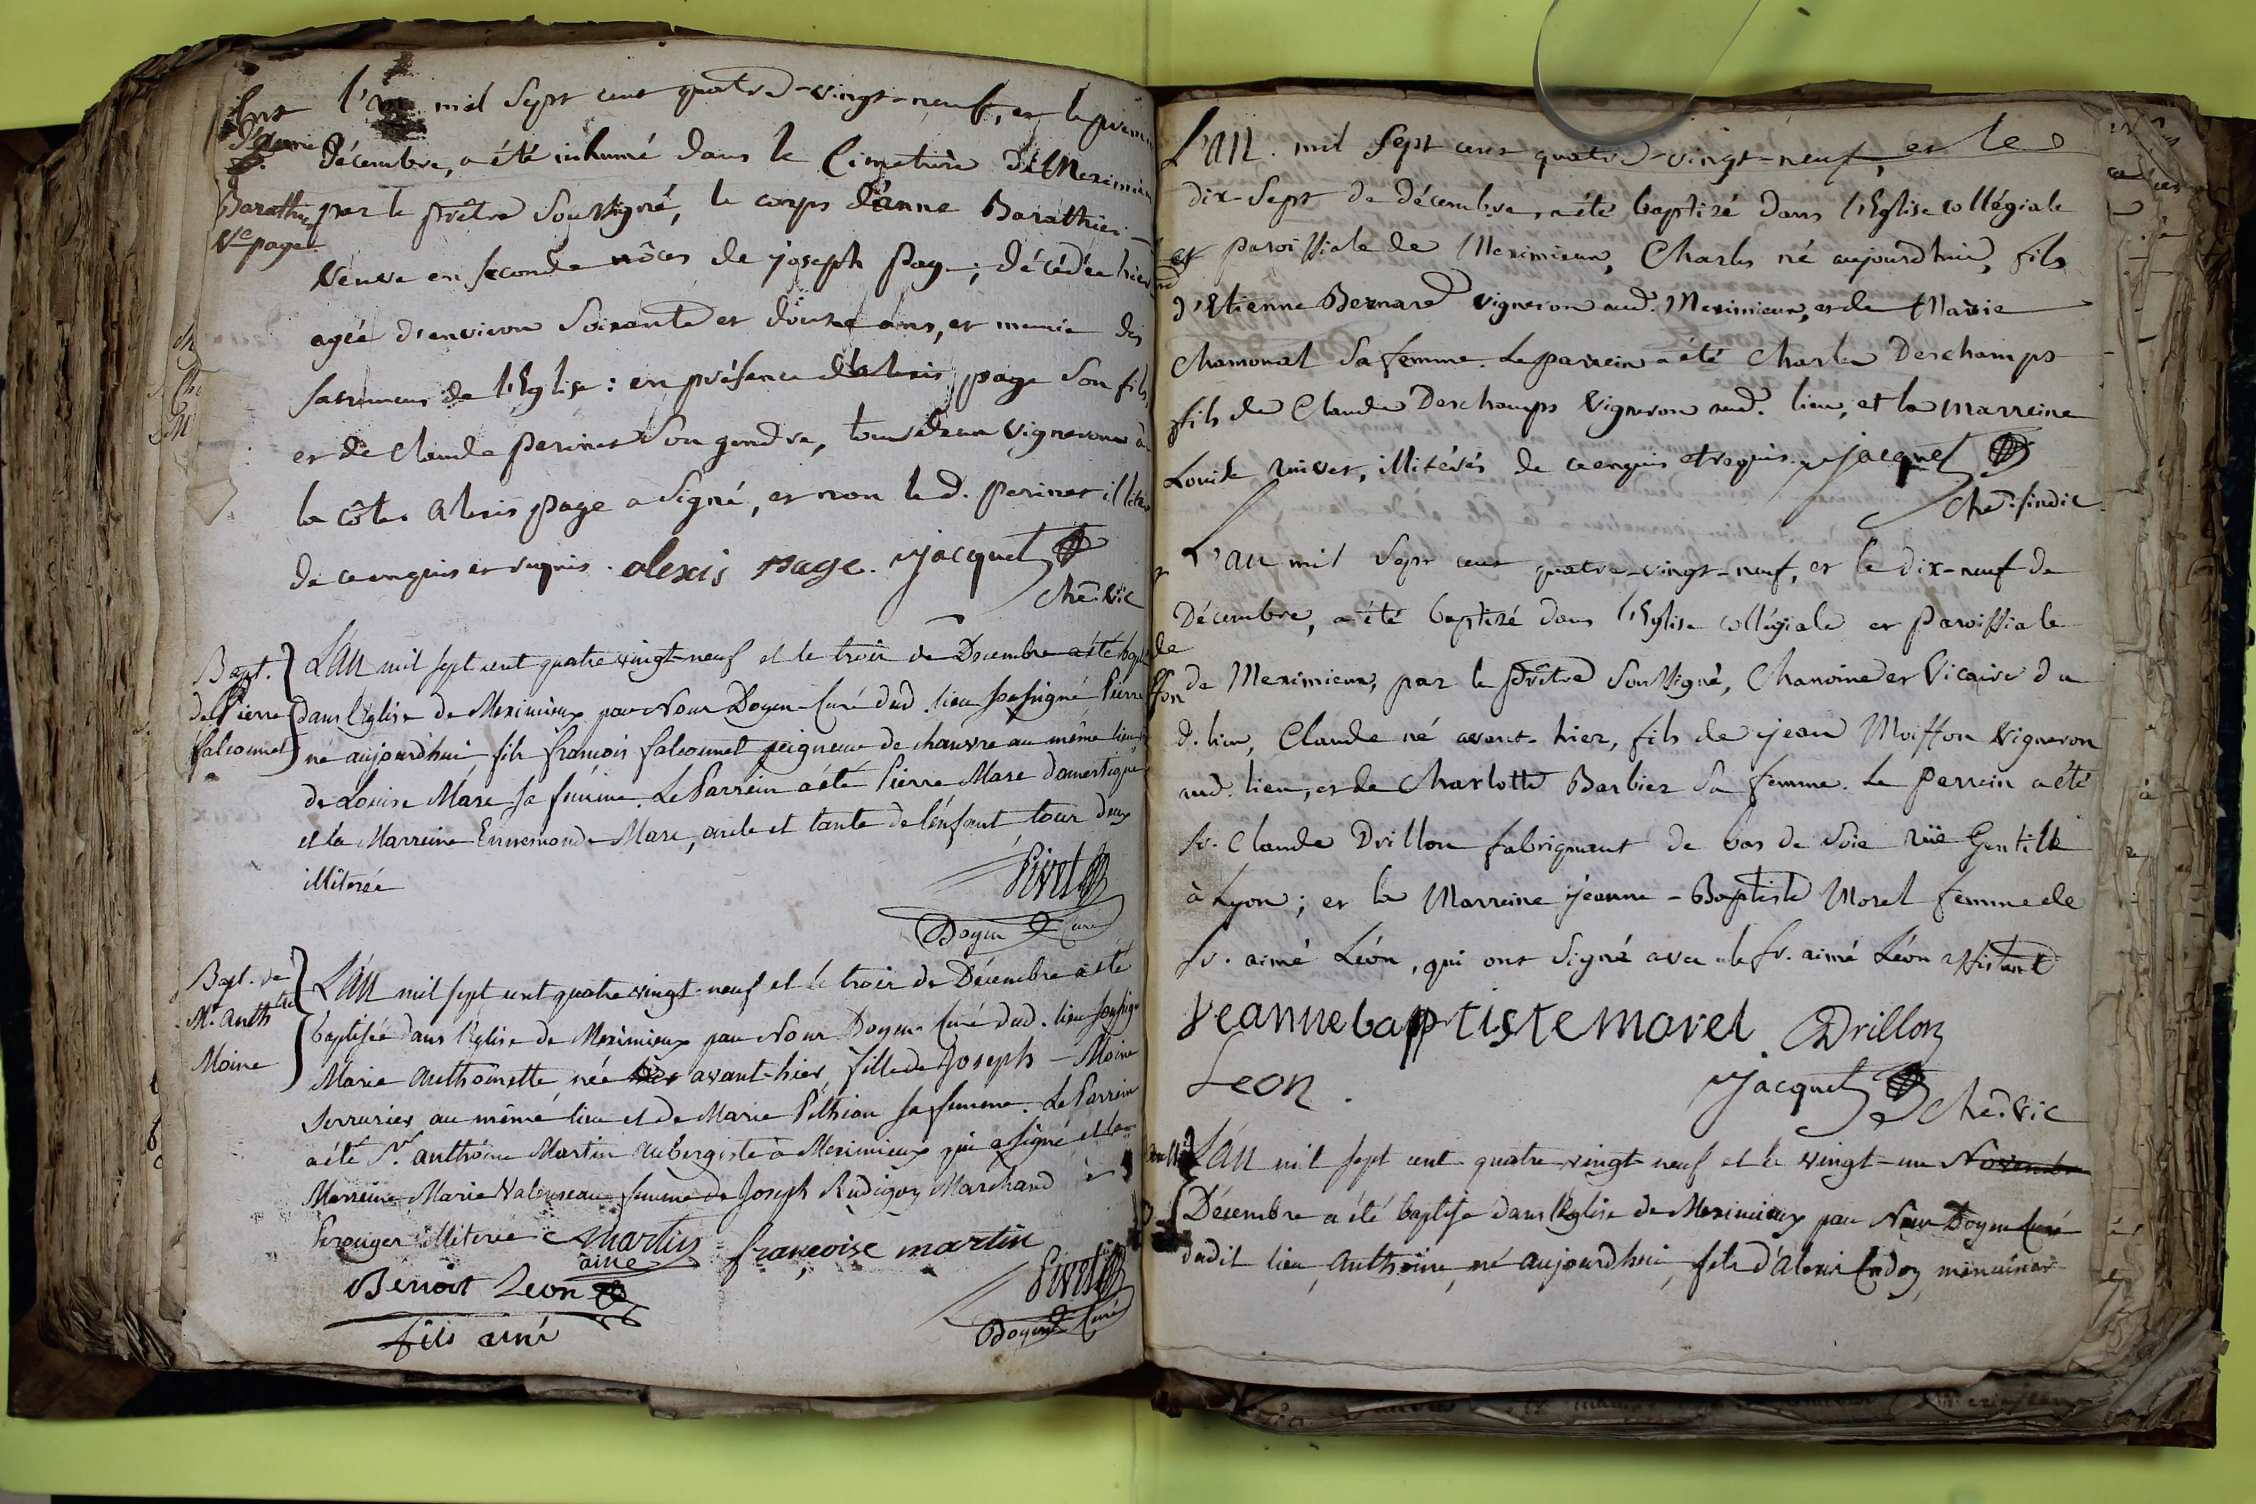 Ent
d'anne
Barathier
Ve page
l'an mil Sept cent quatre-vingt-neuf, et le premier
décembre, a été inhumé dans le Cimetière de Meximieux
par le prêtre Soussigné, le corps d'anne Barathier
veuve en seconde nôces de joseph page; décédée hier
agée d'environ Soixante et douze ans, et munie des
sacremens de l'Eglise: en présence d'alexis page Son fils,
et de Claude perinet Son gendre, tous deux vignerons à
la côte. alexis page a signé, et non led. perinet illitéré
de ce enquis et requis. alexis page. jacquet
Che. vic
Bapt.
de Pierre
falconnet
L'an mil sept cent quatre vingt-neuf et le trois de Decembre a été baptisé
dans l'Eglise de Meximieux par Nous Doyen-Curé dud. lieu soussigné Pierre
né aujourd'hui fils françois falconnet peigneur de chanvre au même lieu, et
de Louise Mare sa femme. Le Parrein a été Pierre Mare domestique
et la Marreine Ennemonde Mare, oncle et tante de l'enfant, tous deux
illiterés
Pivet
Doyen Curé
Bapt. de
Me. anthtte
Moine
L'an mil sept cent quatre vingt-neuf et le trois de Décembre a été
baptisée dans l'Eglise de Meximieux par Nous Doyen-Curé dud. lieu soussigné
Marie anthoinette née avant-hier, fille de Joseph-Moine
serrurier au même lieu et de Marie Péthiau sa femme. Le Parrein
a été Sr. anthoine Martin aubergiste à Meximieux qui a signé et la
Marreine Marie Valenseau femme de Joseph Rudigoz Marchand à
Perouges illiterée martin françoise martin
aine
Benoit Leon
fils ainé
Pivet
Doyen Curé
L'an mil Sept cent quatre-vingt-neuf, et le
dix-Sept de décembre, a été baptisé dans l'Eglise collégiale
et paroissiale de Meximieux, Charles né aujourd'hui, fils
d'Etienne Bernard vigneron aud. Meximieux, et de Marie
Chamonal Sa femme. Le parrein a été Charles Deschamps
fils de Claude Deschamps Vigneron aud. lieu, et la marreine
Louise nivet, illitérés de ce enquis et requis. jacquet
Che. sindic
L'an mil Sept cent quatre-vingt-neuf, et le dix-neuf de
Décembre, a été baptisé dans l'Eglise collégiale et paroissiale
de Meximieux, par le prêtre Soussigné, Chanoine et Vicaire du
d. lieu, Claude né avant-hier, fils de jean Moiffon Vigneron
aud. lieu, et de Charlotte Barbier Sa femme. Le Perrein a été
Sr. Claude Drillon fabriquant de bas de Soie rüe Gentille
à Lyon; et la Marreine jeanne-Baptiste Morel femme de
Sr. aimé Léon, qui ont signé avec le Sr. aimé Léon assistant
Jeanne baptiste morel Drillon
Leon.
jacquet Che. vic
L'an mil sept cent quatre-vingt-neuf et le vingt-un Novembre
Décembre a été baptisé dans l'Eglise de Meximieux par Nous Doyen Curé
dudit lieu, anthoine, né aujourd'hui, fils d'alexis menuisier